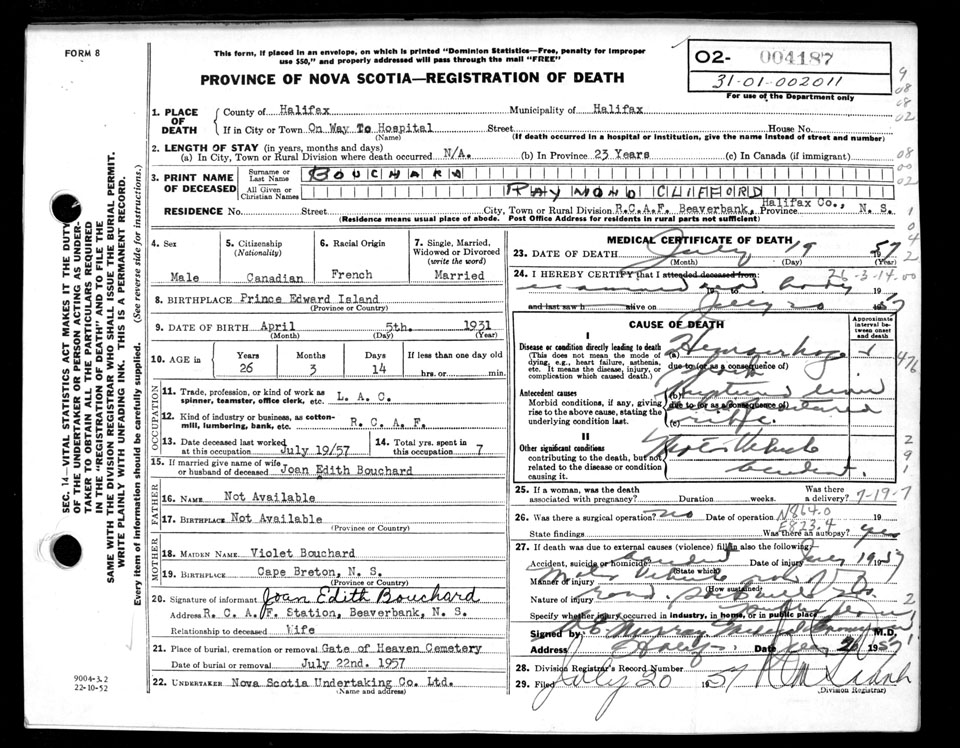 FORM 8
This form, if placed in an envelope, on which is printed "Dominion Statistics—Free, penalty for improper
use $50," and properly addressed will pass through the mail "FREE"
PROVINCE OF NOVA SCOTIA—REGISTRATION OF DEATH
02- 004187
31-01-002011
For use of the Department only
1. PLACE OF DEATH
County of Halifax Municipality of Halifax
If in City or Town On Way To Hospital Street House No.
(Name) (If death occurred in a hospital or institution, give the name instead of street and number)
2. LENGTH OF STAY (in years, months and days)
(a) In City, Town or Rural Division where death occurred N/A. (b) In Province 23 Years (c) In Canada (if immigrant)
3. PRINT NAME OF DECEASED
Surname or Last Name BOUCHARD
All Given or Christian Names RAYMOND CLIFFORD
RESIDENCE No. Street City, Town or Rural Division R.C.A.F. Beaverbank, Halifax Co., Province N. S.
(Residence means usual place of abode. Post Office Address for residents in rural parts not sufficient)
4. Sex
Male
5. Citizenship (Nationality)
Canadian
6. Racial Origin
French
7. Single, Married, Widowed or Divorced (write the word)
Married
8. BIRTHPLACE Prince Edward Island
(Province or Country)
9. DATE OF BIRTH April 5th. 1931
(Month) (Day) (Year)
10. AGE in Years Months Days If less than one day old
26 3 14 hrs. or min.
OCCUPATION
11. Trade, profession, or kind of work as spinner, teamster, office clerk, etc. L. A. C.
12. Kind of industry or business, as cotton-mill, lumbering, bank, etc. R. C. A. F.
13. Date deceased last worked at this occupation July 19/57
14. Total yrs. spent in this occupation 7
15. If married give name of wife or husband of deceased Joan Edith Bouchard
FATHER
16. NAME Not Available
17. BIRTHPLACE Not Available
(Province or Country)
MOTHER
18. MAIDEN NAME Violet Bouchard
19. BIRTHPLACE Cape Breton, N. S.
(Province or Country)
20. Signature of informant Joan Edith Bouchard
Address R. C. A. F. Station, Beaverbank, N. S.
Relationship to deceased Wife
21. Place of burial, cremation or removal Gate of Heaven Cemetery
Date of burial or removal July 22nd. 1957
22. UNDERTAKER Nova Scotia Undertaking Co. Ltd.
(Name and address)
MEDICAL CERTIFICATE OF DEATH
23. DATE OF DEATH July 19 57
(Month) (Day) (Year)
26-3-14.00
24. I HEREBY CERTIFY that I attended deceased from:
examined body 19
and last saw h alive on July 20 1957
CAUSE OF DEATH
Approximate interval between onset and death
I
Disease or condition directly leading to death
(This does not mean the mode of dying, e.g., heart failure, asthenia, etc. It means the disease, injury, or complication which caused death.)
(a) Hemorrhage
due to (or as a consequence of)
Antecedent causes
Morbid conditions, if any, giving rise to the above cause, stating the underlying condition last.
(b) Ruptured liver
due to (or as a consequence of)
(c)
II
Other significant conditions
contributing to the death, but not related to the disease or condition causing it.
Motor Vehicle
accident.
25. If a woman, was the death associated with pregnancy? Duration weeks. Was there a delivery?
7-19-7
26. Was there a surgical operation? no Date of operation 19
N864.0
E823.4
State findings Was there an autopsy? yes
27. If death was due to external causes (violence) fill in also the following:
Accident, suicide or homicide accident Date of injury July 19 1957
(State which)
Manner of injury Motor Vehicle
(How sustained)
Nature of injury
Specify whether injury occurred in industry, in home, or in public place
Signed by M.D.
Address Halifax Date July 20 1957
28. Division Registrar's Record Number
29. Filed July 20 1957
(Division Registrar)
SEC. 14—VITAL STATISTICS ACT MAKES IT THE DUTY
OF THE UNDERTAKER OR PERSON ACTING AS UNDERTAKER TO OBTAIN ALL THE PARTICULARS REQUIRED
IN THE "REGISTRATION OF DEATH" AND TO FILE THE
SAME WITH THE DIVISION REGISTRAR WHO SHALL ISSUE THE BURIAL PERMIT.
WRITE PLAINLY WITH UNFADING INK. THIS IS A PERMANENT RECORD.
Every item of information should be carefully supplied. (See reverse side for instructions.)
9004-3.2
22-10-52